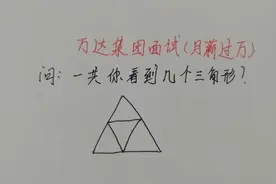 万达集团面试(月薪过万)
问：一共你看到几个三角形？